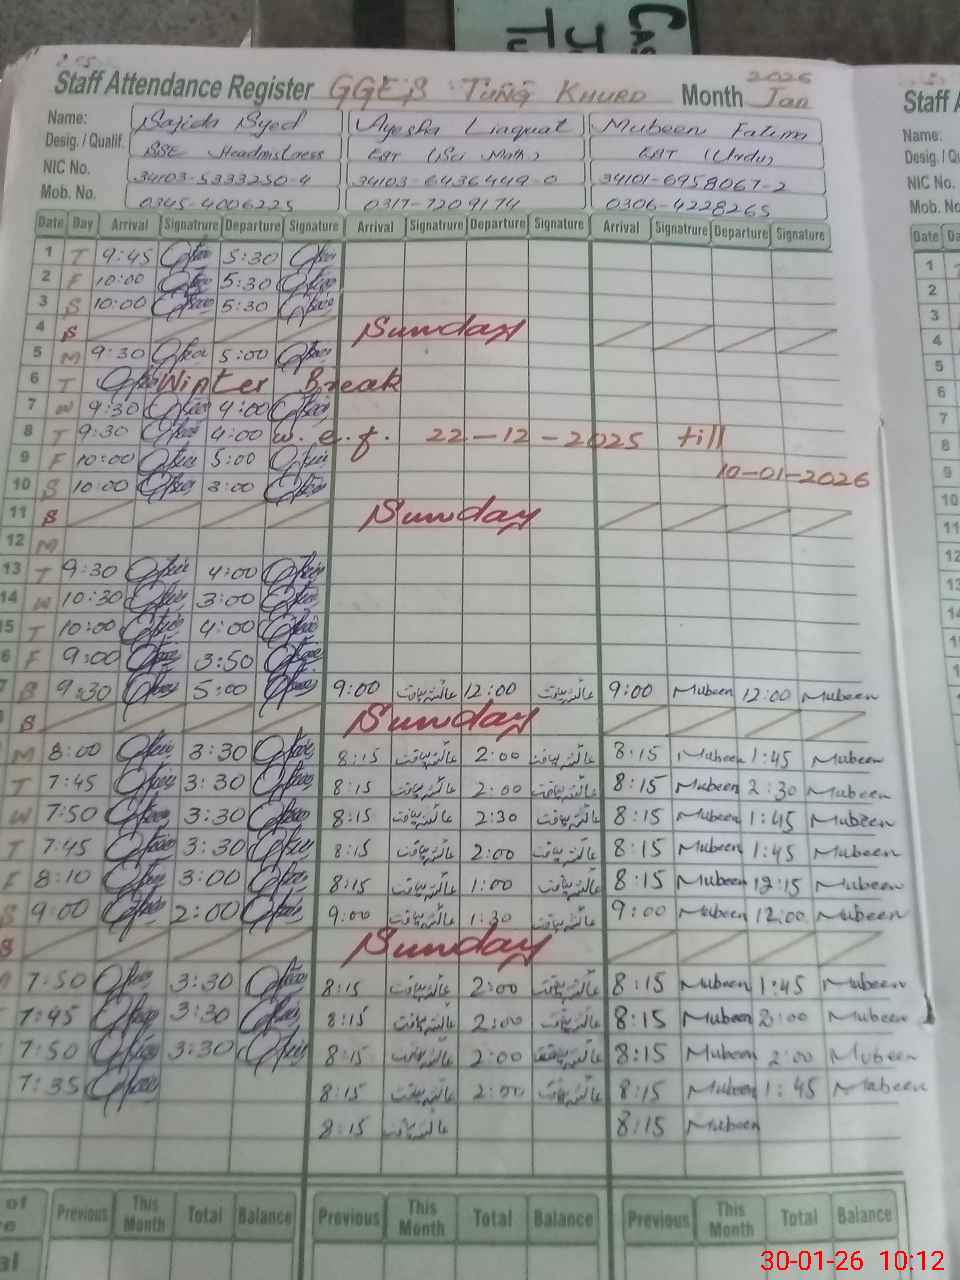 CAS
Staff Attendance Register GGES TUNG KHURD Month Jan 2026
Name: Sajida Syed Ayesha Liaquat Mubeen Fatima
Desig. / Qualif. SSE Headmistress EST (Sci Math) EST (Urdu)
NIC No. 34103-5333250-4 34103-6436449-0 34101-6958067-2
Mob. No. 0345-4006225 0317-7209174 0306-4228265
Date Day Arrival Signatrure Departure Signature Arrival Signatrure Departure Signature Arrival Signatrure Departure Signature
1 T 9:45 5:30
2 F 10:00 5:30
3 S 10:00 5:30
4 S Sunday
5 M 9:30 5:00
6 T Winter Break
7 W 9:30 4:00
8 T 9:30 4:00 w.e.f. 22-12-2025 till
9 F 10:00 5:00 10-01-2026
10 S 10:00 3:00
11 S Sunday
12 M
13 T 9:30 4:00
14 W 10:30 3:00
15 T 10:00 4:00
6 F 9:00 3:50
7 S 9:30 5:00 9:00 عائشہ لیاقت 12:00 عائشہ لیاقت 9:00 Mubeen 12:00 Mubeen
S Sunday
M 8:00 3:30 8:15 عائشہ لیاقت 2:00 عائشہ لیاقت 8:15 Mubeen 1:45 Mubeen
T 7:45 3:30 8:15 عائشہ لیاقت 2:00 عائشہ لیاقت 8:15 Mubeen 2:30 Mubeen
W 7:50 3:30 8:15 عائشہ لیاقت 2:30 عائشہ لیاقت 8:15 Mubeen 1:45 Mubeen
T 7:45 3:30 8:15 عائشہ لیاقت 2:00 عائشہ لیاقت 8:15 Mubeen 1:45 Mubeen
F 8:10 3:00 8:15 عائشہ لیاقت 1:00 عائشہ لیاقت 8:15 Mubeen 12:15 Mubeen
S 9:00 2:00 9:00 عائشہ لیاقت 1:30 عائشہ لیاقت 9:00 Mubeen 12:00 Mubeen
S Sunday
7:50 3:30 8:15 عائشہ لیاقت 2:00 عائشہ لیاقت 8:15 Mubeen 1:45 Mubeen
7:45 3:30 8:15 عائشہ لیاقت 2:00 عائشہ لیاقت 8:15 Mubeen 2:00 Mubeen
7:50 3:30 8:15 عائشہ لیاقت 2:00 عائشہ لیاقت 8:15 Mubeen 2:00 Mubeen
7:35 8:15 عائشہ لیاقت 2:00 عائشہ لیاقت 8:15 Mubeen 1:45 Mubeen
8:15 عائشہ لیاقت 8:15 Mubeen
of Previous This Month Total Balance Previous This Month Total Balance Previous This Month Total Balance
Staff
Name:
Desig. / Qu
NIC No.
Mob. No.
Date Da
1
2
3
4
5
6
7
8
9
10
11
12
13
14
30-01-26 10:12